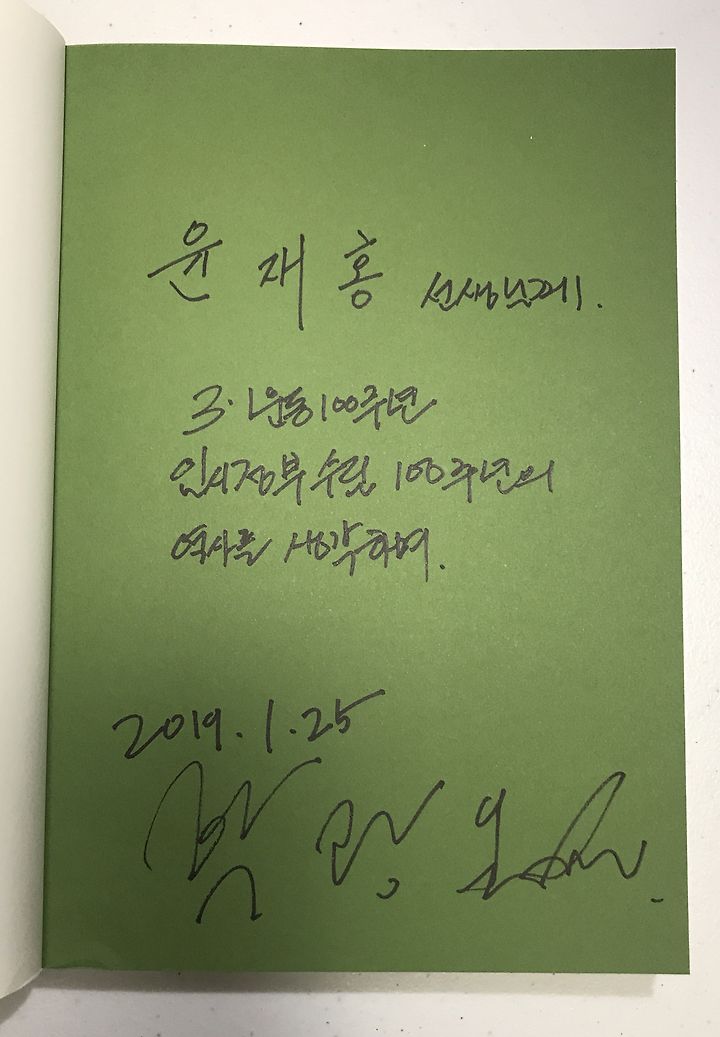 윤재홍 선생님께.
3·1운동100주년
임시정부 수립 100주년의
역사를 생각하며.
2019.1.25